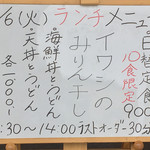 /6(火)ランチメニュー
日替定食
10食限定
900
イワシの
みりん干し
・海鮮丼とうどん
・天丼とうどん
各1000-
:30〜14:00ラストオーダー30分